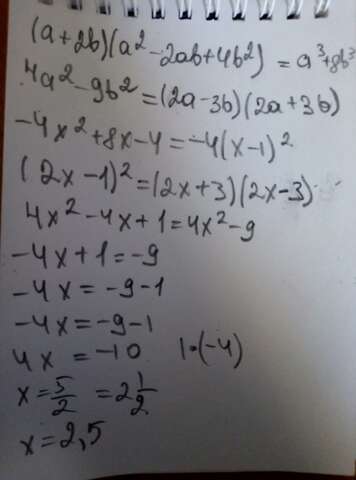 (a+2b)(a²-2ab+4b²) = a³+8b³
4a²-9b²=(2a-3b)(2a+3b)
-4x²+8x-4=-4(x-1)²
(2x-1)²=(2x+3)(2x-3)
4x²-4x+1=4x²-9
-4x+1=-9
-4x=-9-1
-4x=-9-1
4x=-10 1·(-4)
x=5/2 =2 1/2
x=2,5